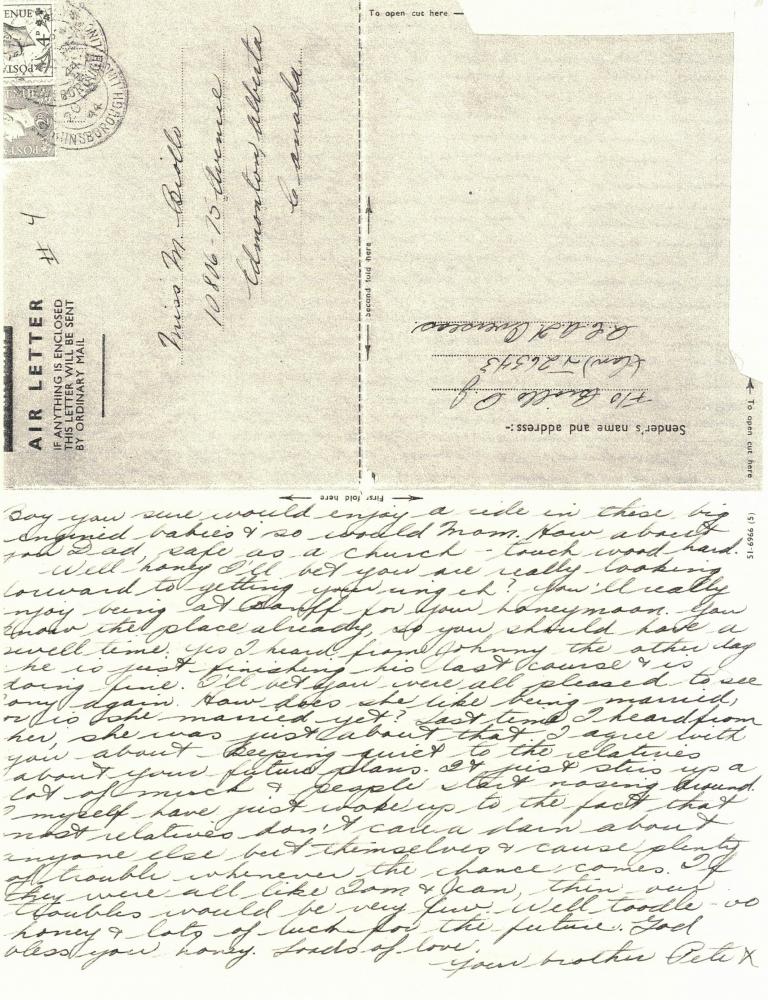 To open cut here
ENUE
AIR LETTER
IF ANYTHING IS ENCLOSED
THIS LETTER WILL BE SENT
BY ORDINARY MAIL
# 4
Miss M. Biollo
10806-75 Avenue
Edmonton, Alberta
Canada
Second fold here
Sender's name and address:-
F/O Biollo P. J.
(Can) J 26343
R.C.A.F. Overseas
To open cut here
First fold here
51-6966 (5)
Boy you sure would enjoy a ride in these big
engined babies & so would Mom. How about
you Dad, safe as a church - touch wood hard.
Well honey I'll bet you are really looking
forward to getting your ring eh? You'll really
enjoy being at Banff for your honeymoon. You
know the place already, so you should have a
swell time. Yes I heard from Johnny the other day
he is just finishing his last course & is
doing fine. I'll bet you were all pleased to see
again. How does she like being married,
or is she married yet? Last time I heard from
her, she was just about that. I agree with
you about keeping quiet to the relatives
about your future plans. It just stirs up a
lot of muck & people start nosing around.
I myself have just woke up to the fact that
most relatives don't care a darn about
anyone else but themselves & cause plenty
of trouble whenever the chance comes. If
they were all like Tom & Jean, then our
troubles would be very few. Well toodle-oo
honey & lots of luck for the future. God
bless you honey. Loads of love.
Your brother Pete X